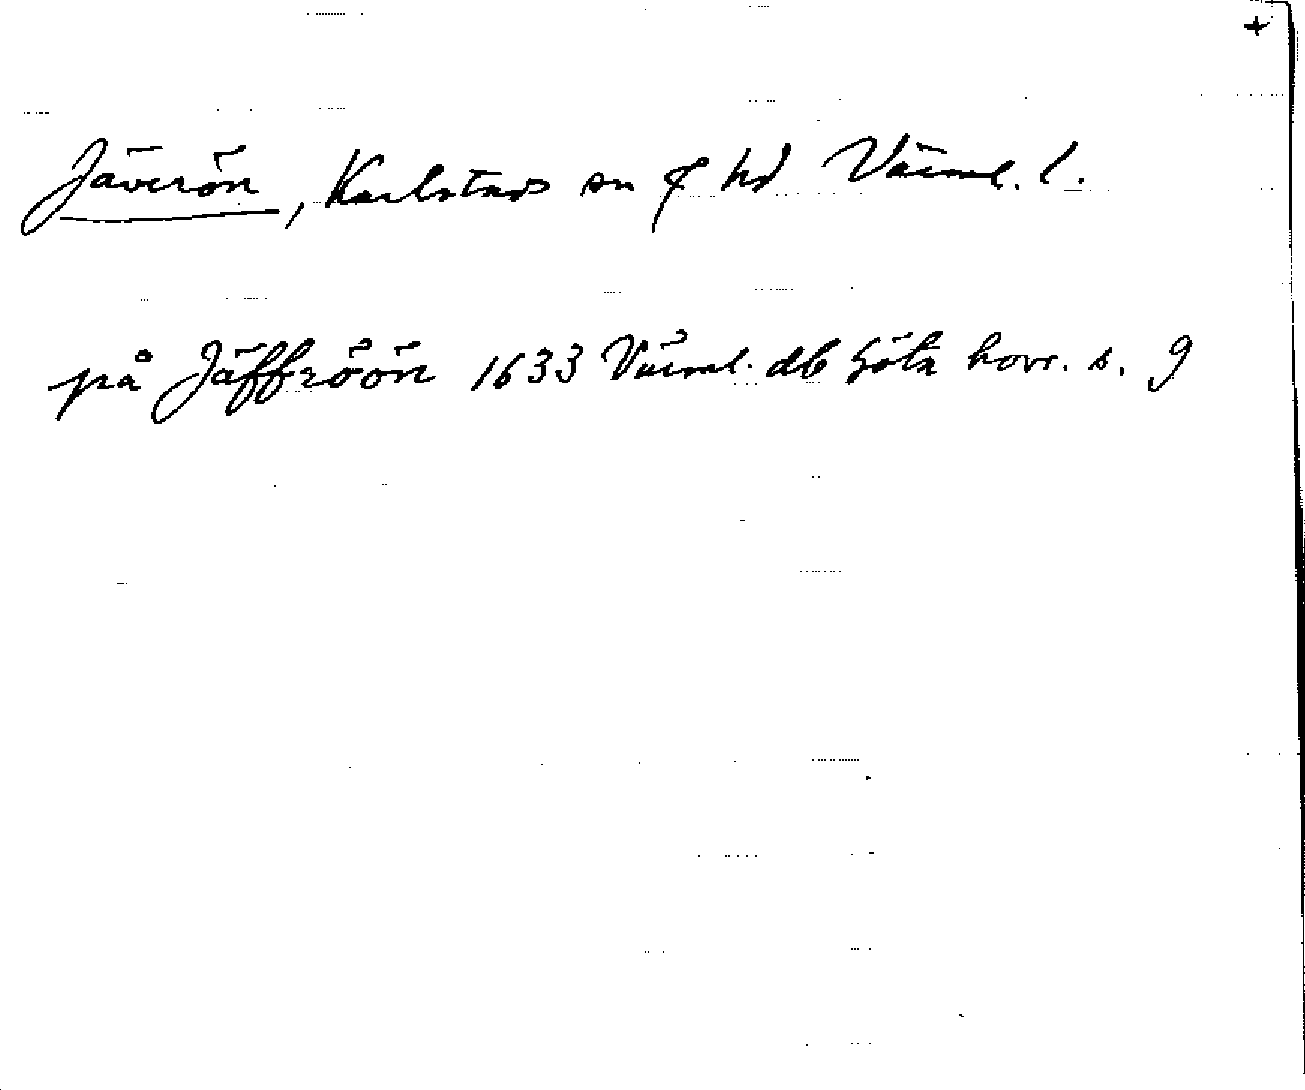 +
Jäverön, Karlstads sn o hd Värml. l.
på Jäffröön 1633 Värml. db Göta hovr. s. 9